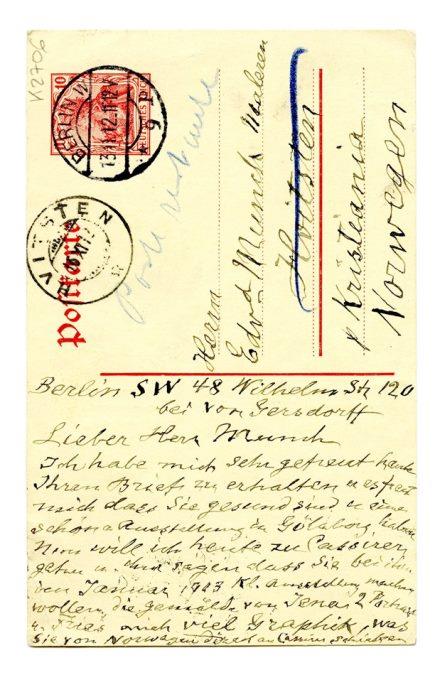 K2706
10
BERLIN W
13.11.12.11-12V
* 9 d
DEUTSCHES REICH
HVITSTEN
Postkarte
Herrn
Edvd Munch Maleren
Hvitsten
p Kristiania
Norwegen
Berlin SW 48 Wilhelm Str 120
bei von Gersdorff
Lieber Herr Munch
Ich habe mich sehr gefreut heute
Ihren Brief zu erhalten u es freut
mich dass Sie gesund sind u eine
schöne Ausstellung in Göteborg haben
Nun will ich heute zu Cassirer
gehen u ihm sagen dass Sie bei ihm
von Januar 1913 Kl. Ausstellung machen
wollen, die gemälde von Jena 2 Portrait
u Fries auch viel Graphik, was
Sie von Norwegen direct an Cassirer schicken